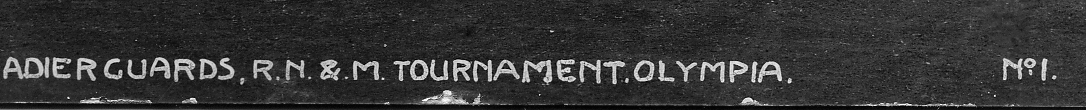 ADIER GUARDS, R.N. & M. TOURNAMENT. OLYMPIA. Nº1.